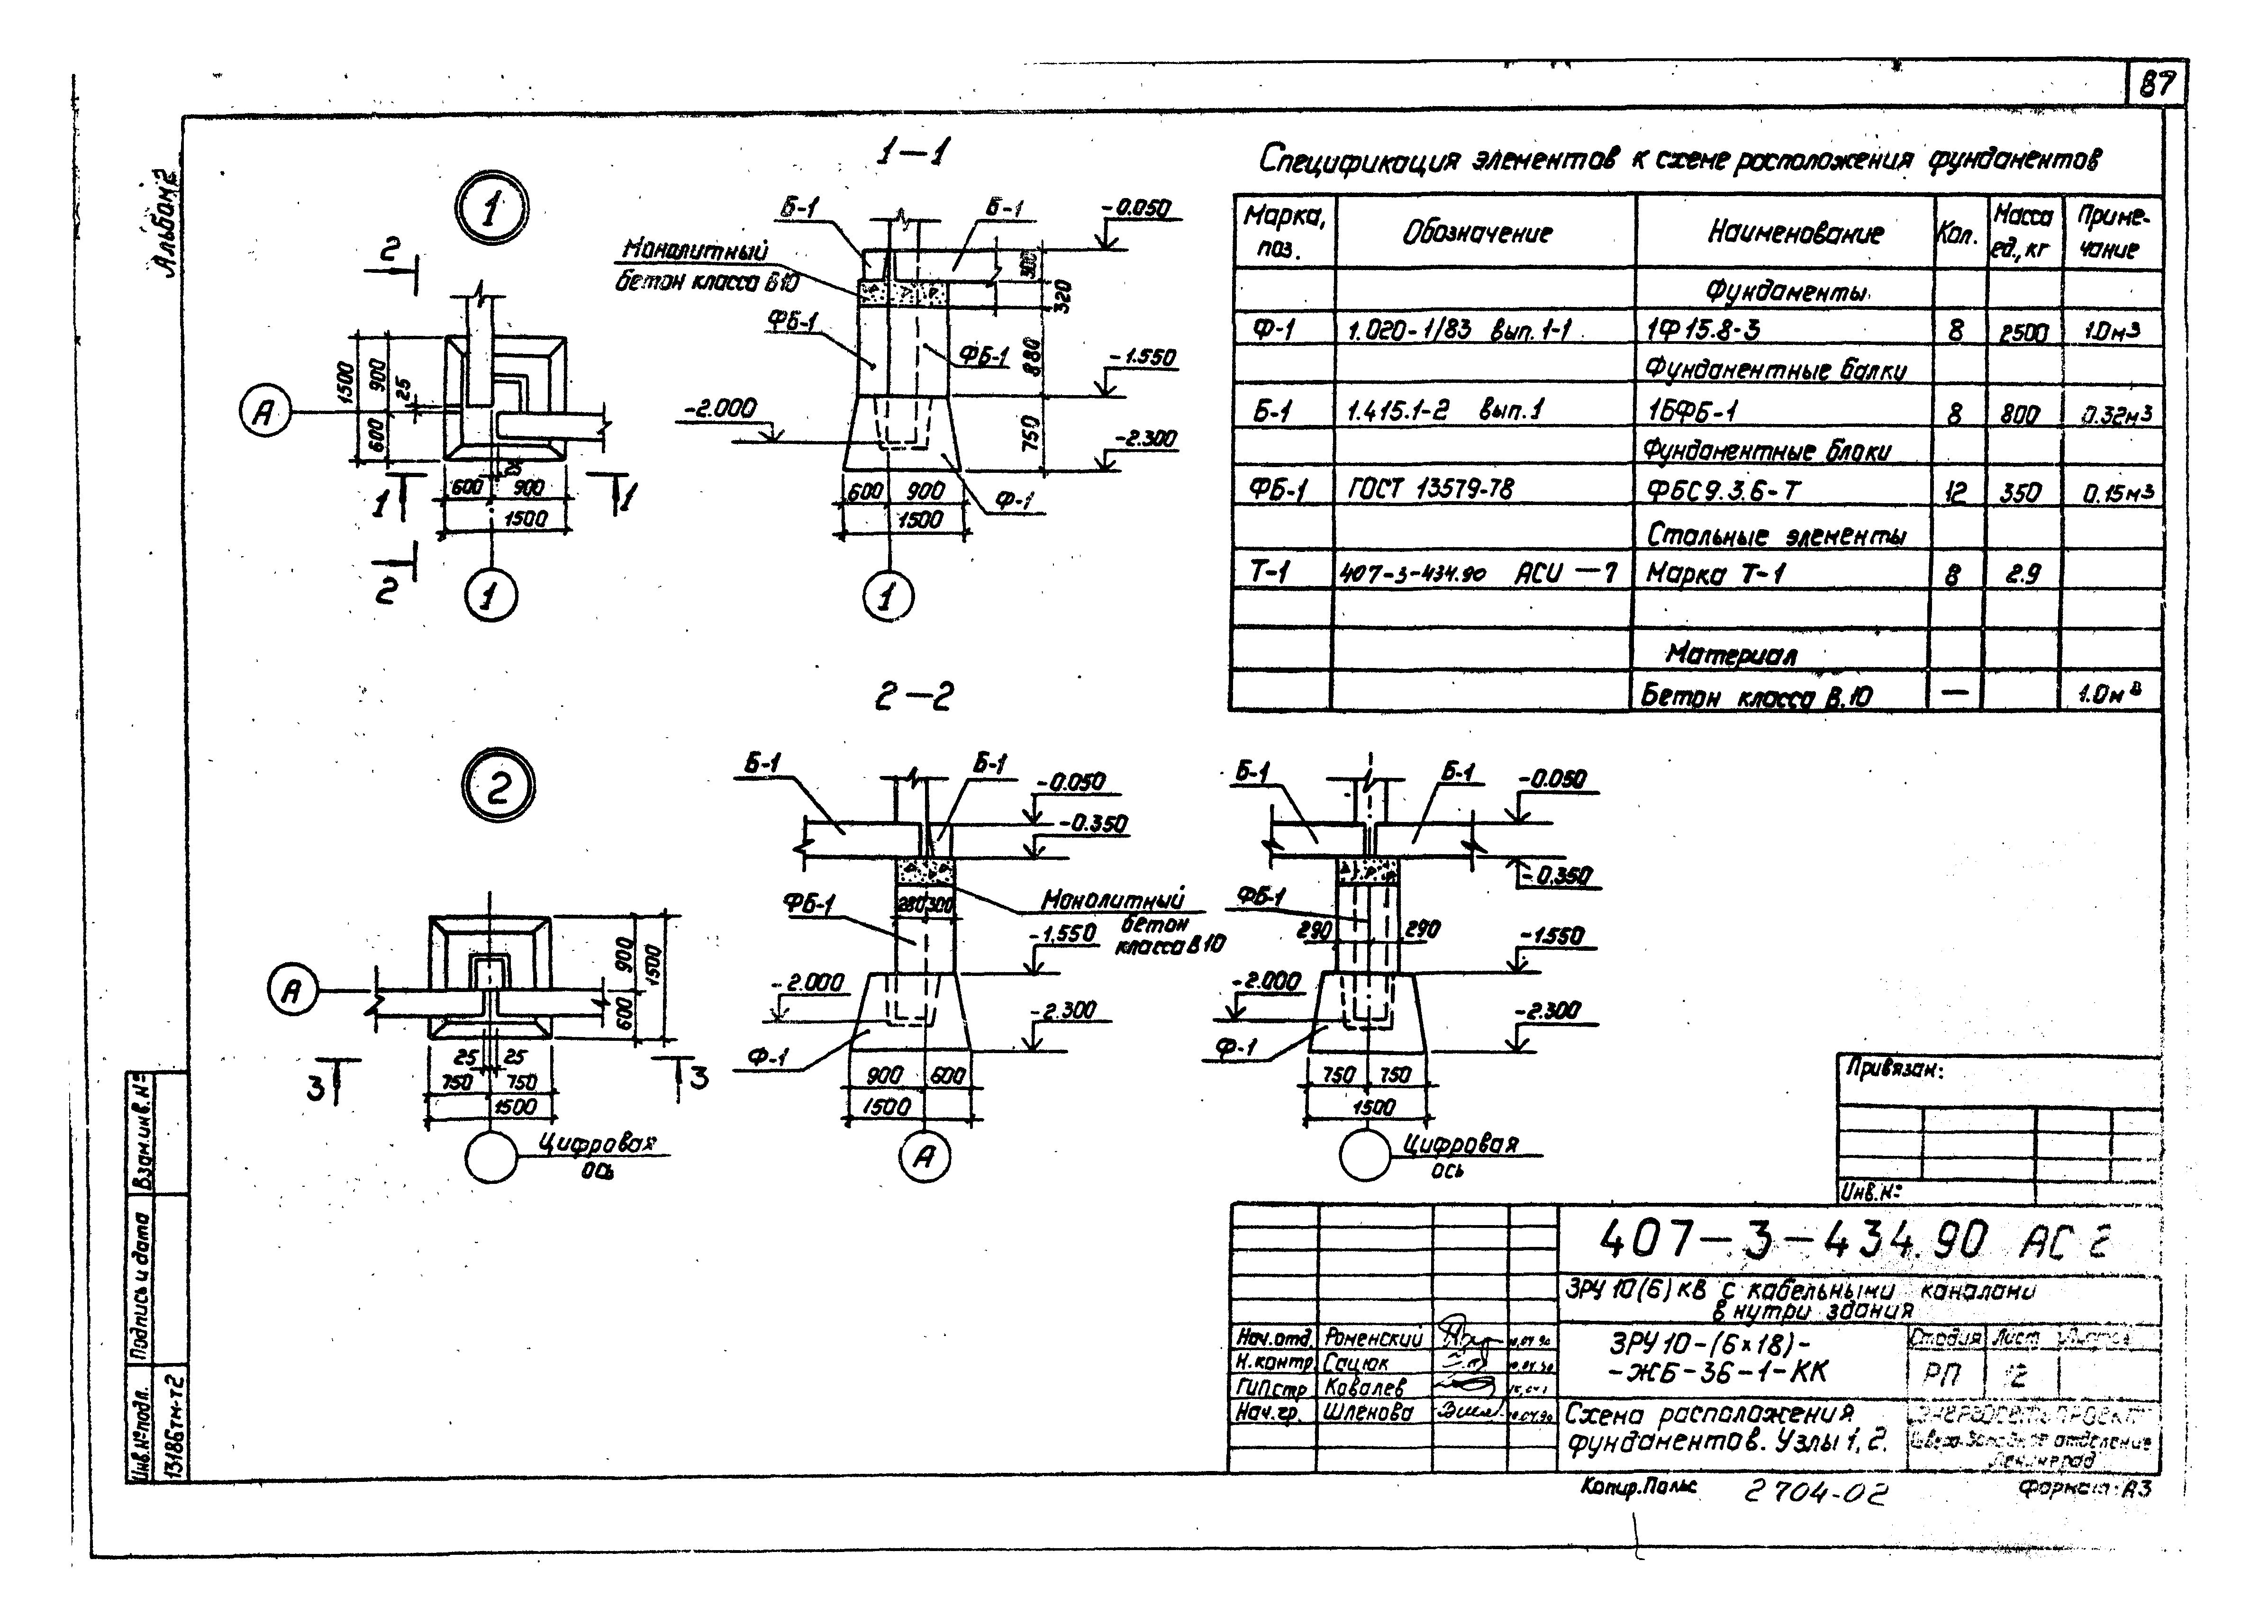 87
Альбом 2
1
2
2
А
1500
900
600
25
25
600 900
1500
1
1
1
1-1
Б-1
Б-1
Монолитный
бетон класса В10
ФБ-1
ФБ-1
-0.050
300
320
880
750
-1.550
-2.000
-2.300
Ф-1
600 900
1500
1
Спецификация элементов к схеме расположения фундаментов
Марка, поз. Обозначение Наименование Кол. Масса ед., кг Примечание
Фундаменты
Ф-1 1.020-1/83 вып. 1-1 1Ф15.8-3 8 2500 1.0м³
Фундаментные балки
Б-1 1.415.1-2 вып. 1 1БФ6-1 8 800 0.32м³
Фундаментные блоки
ФБ-1 ГОСТ 13579-78 ФБС9.3.6-Т 12 350 0.15м³
Стальные элементы
Т-1 407-3-434.90 АСИ-7 Марка Т-1 8 2.9
Материал
Бетон класса В.10 — 1.0м³
2
А
900
600
1500
25 25
750 750
1500
3
3
Цифровая
ось
2-2
Б-1
Б-1
-0.050
-0.350
ФБ-1
280 300
Монолитный
бетон
класса В10
-1.550
-2.000
-2.300
Ф-1
900 600
1500
А
Б-1
Б-1
-0.050
-0.350
ФБ-1
290
290
-1.550
-2.000
-2.300
Ф-1
750 750
1500
Цифровая
ось
Привязан:
Инв.№
407-3-434.90 АС 2
ЗРУ 10(6) кВ с кабельными каналами
внутри здания
Нач.отд. Роменский
Н.контр. Сацюк
ГИПстр Ковалев
Нач.гр. Шленова
ЗРУ 10-(6×18)-
-ЖБ-36-1-КК
Стадия Лист Листов
РП 12
Схема расположения
фундаментов. Узлы 1, 2.
Энергосетьпроект
Северо-Западное отделение
Ленинград
Копир. Пальс
2704-02
Формат: А3
Взам.инв.№
Подпись и дата
Инв.№подл.
13186тм-т2